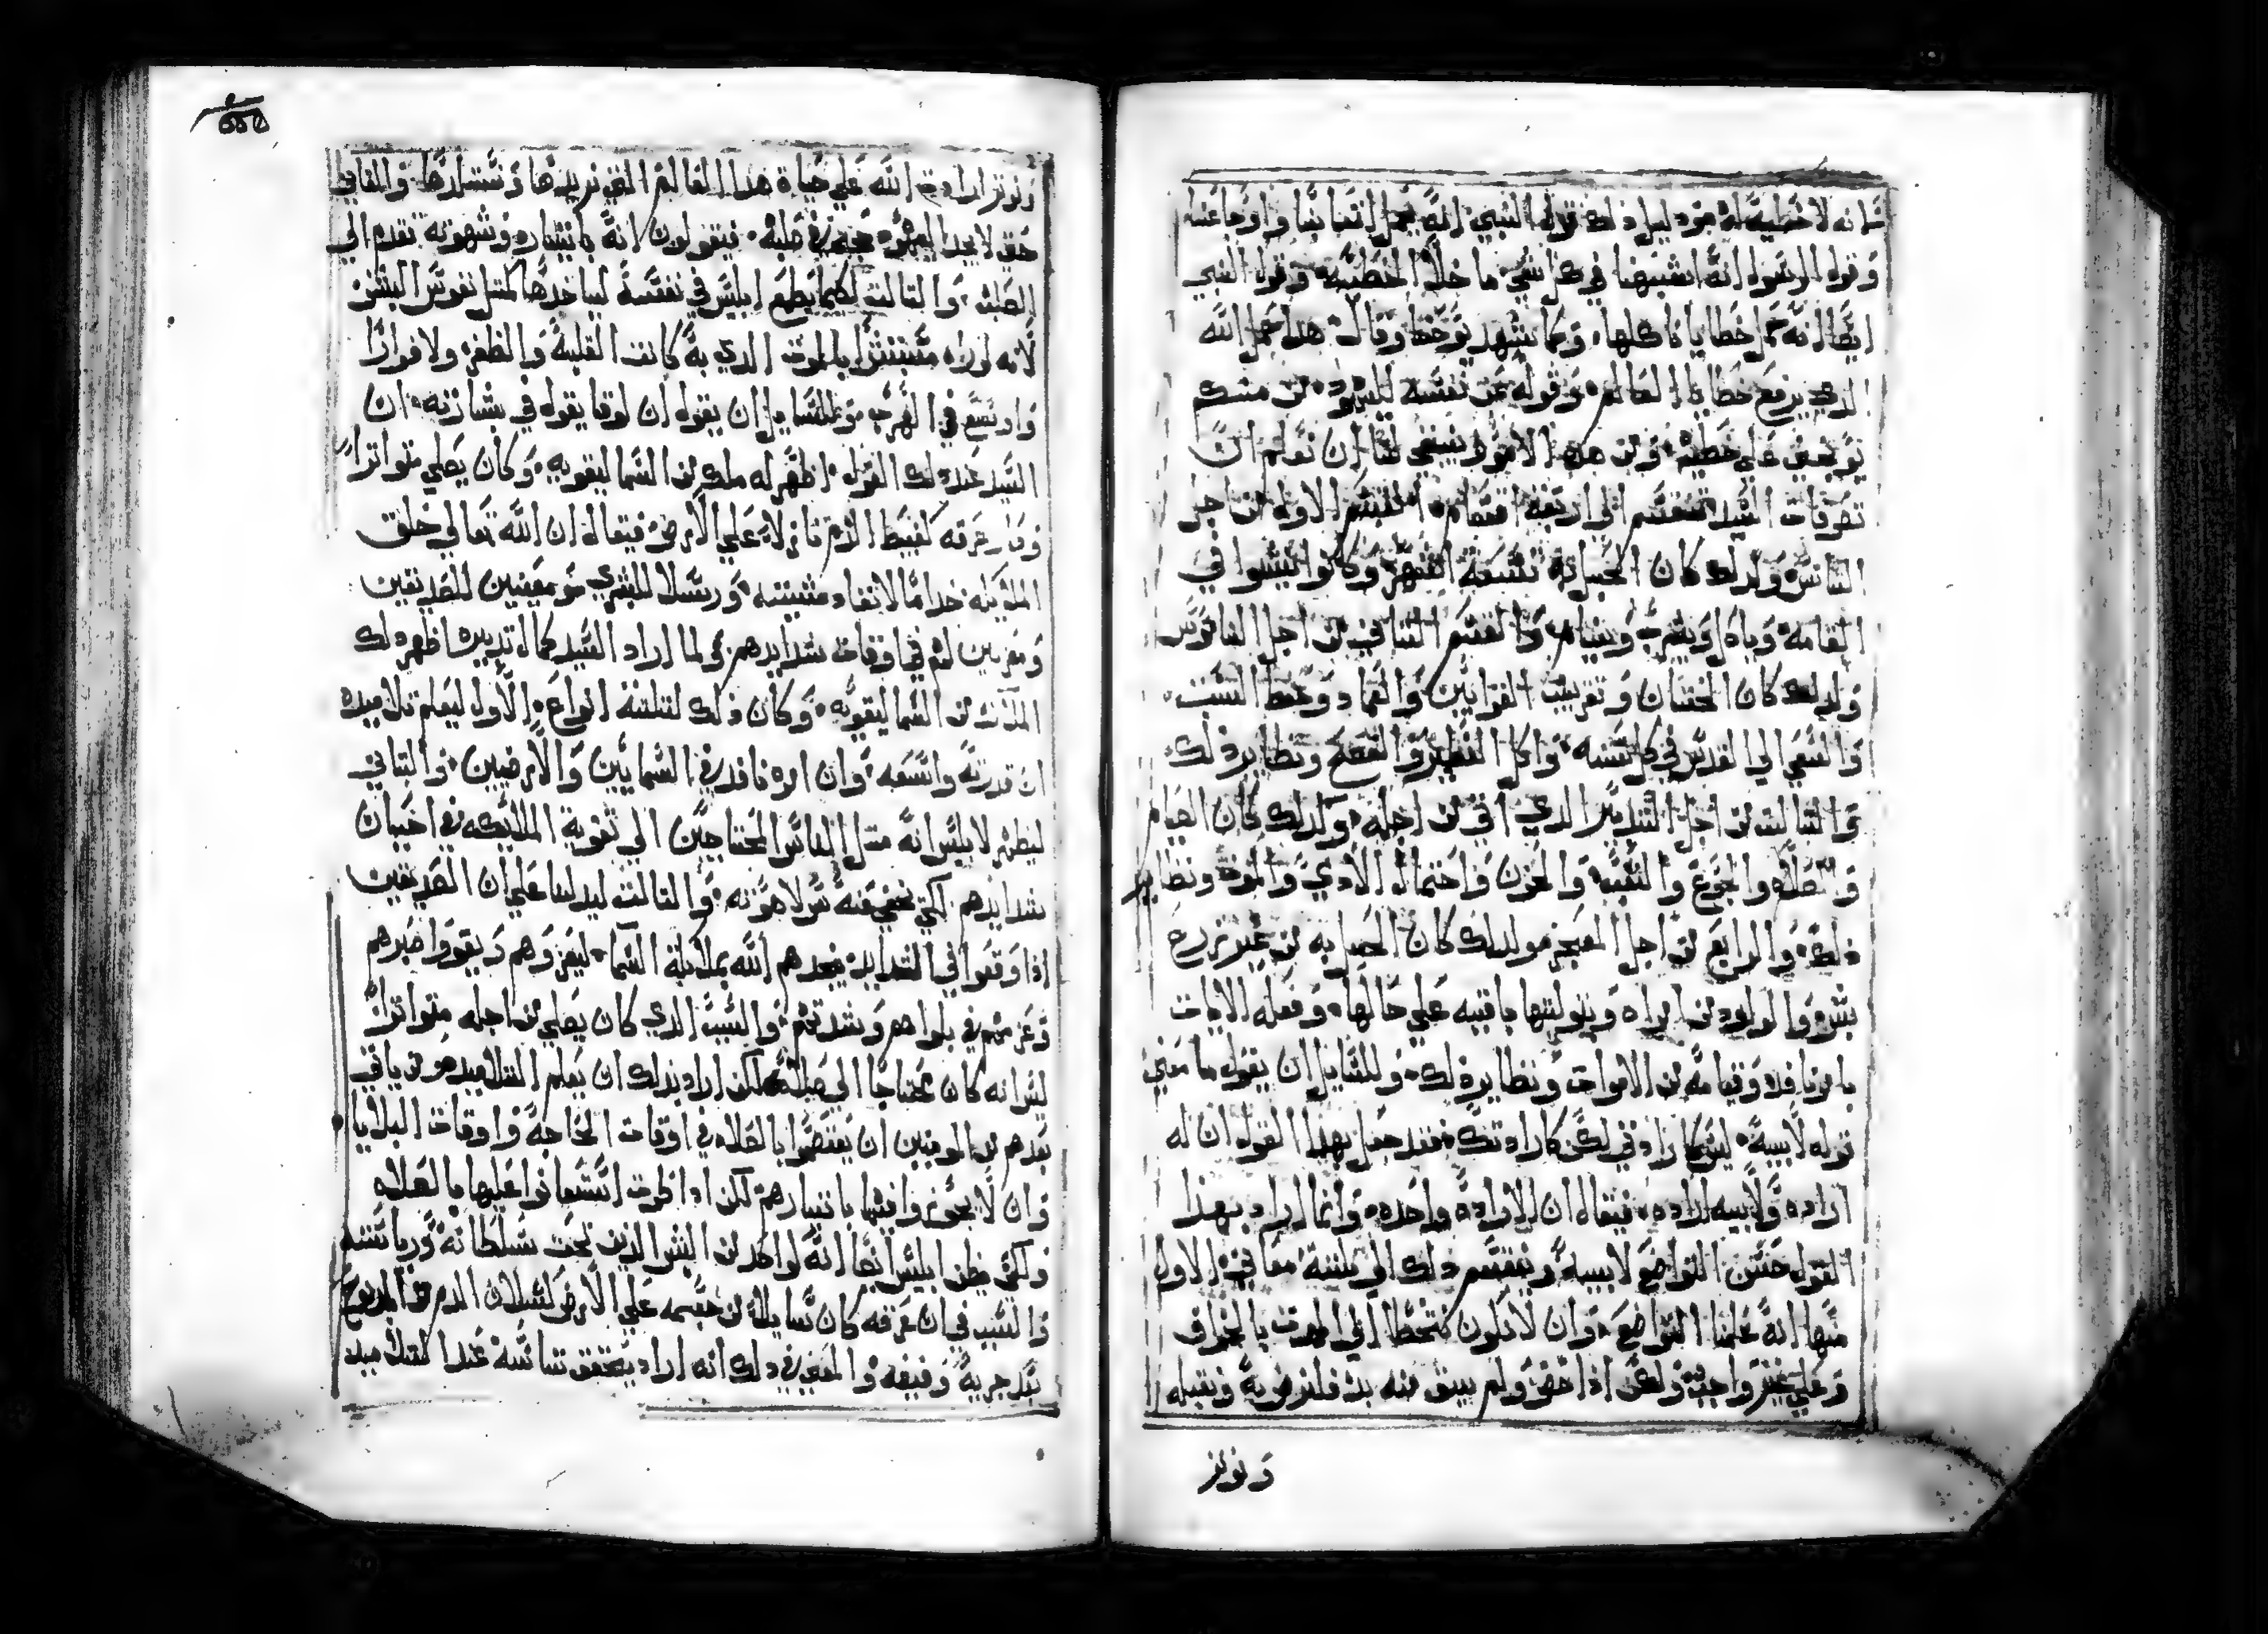 فانه لا خطية له ودليل ذلك قول النبي انه يحمل اتعابنا واوجاعنا
وقول الرسول انه اشبهنا في كل شي ما خلا الخطية وقول النبي
ايضا انه حمل خطايانا كلها وكما شهد يوحنا وقال هذا حمل الله
الدي يرفع خطايا العالم وقوله عن نفسه لليهود من منكم
يوبخني علي خطية ومن هذه الامور ينبغي لنا ان نعلم ان
تصرفات السيد تنقسم الي اربعة اقسام القسم الاول من اجل
الناس ولدلك كان الحبل به تسعة اشهر وكانوا ينشوا في
القامة وياكل ويشرب وينام والقسم التاني من اجل الناموس
ولدلك كان الختان وتقريب القرابين والعماد وحفظ السبت
والسعي الي القدس في كل سنه واكل الفطير والفصح ونظاير دلك
والتالت من اجل التدبير الدي اتي من اجله ولدلك كان الصيام
والصلاه والجوع والتعب والحزن واحتمال الادي والموت ونظاير
دلك والرابع من اجل المعجز ولدلك كان الحبل به من غير زرع
بشر والولود من امراه وبتوليتها باقيه علي حالها وفعله الايات
بامر نافد وقيامه من الاموات ونظاير دلك وللسايل ان يقول ما معني
قوله لابيه ليس كارادتي لكن كارادتك فقد جعل بهدا القول ان له
اراده ولابيه اراده فيقال ان الاراده واحده وانما اراد بهدا
القول حسن التواضع لابيه وينقسم دلك الي تلتة معاني الاول
منها انه علمنا التواضع وان لا نكون نتخطا الي الموت بالجزاف
وعلي غير واجب ولكن اذا حق ولم يبق منه بد فلنرضي به ونقبله
ونوتر
ونوتر ارادت الله علي حياة هدا العالم التي نريدها ونستلدها والتاني
حتي لا يجد اليهود حجه في صلبه فيقولون انه باختياره وشهوته تقدم الي
الصلب والتالت لكيما يطمع ابليس في نفسه لياخدها كمتل نفوس البشر
لانه لو راه مستبشرا بالموت الدي به كانت الغلبة والظفر ولا فرارا
واد شع في الهرب وللسايل ان يقول ان لوقا يقول في بشارته ان
السيد عند دلك القول اظهر له ملك من السما ليقويه وكان يصلي متواترا
وصار عرقه كعبيط الدم نازلا علي الارض فيقال ان الله تعالي خلق
الملايكه خداما لانفاد مشيته ورسلا للبشري ومعينين للصديقين
ومعزيين لهم في اوقات شدايدهم ولما اراد السيد كمال تدبيره اظهر دلك
الملاك من السما ليقويه وكان دلك لتلتة انواع الاول ليعلم تلاميده
ان قدرته واسعه وان امره نافد في السماييين والارضيين والتاني
ليظهر لابليس انه متل الناس المحتاجين الي تقوية الملايكه في احيان
شدايدهم لكي يخفي عنه سر لاهوته والتالت ليدلنا علي ان الصديقين
اذا وقعوا في الشدايد فيعدهم الله بملايكة السما ليعزوهم ويقووا صبرهم
وعزمهم في بلواهم وشدتهم والسبب الدي كان يصلي من اجله متواترا
ليس انه كان محتاجا الي صلاه لكن اراد بدلك ان يعلم التلاميد ومن ياتي
بعدهم من المومنين ان يعتصموا بالصلاه في اوقات الحاجة واوقات البلايا
وان لا يجوزوا فيها باختيارهم لكن ادا طرت استعانوا عليها بالصلاه
ولكي يظن ابليس ايضا انه لواحد من البشر الدين تحت سلطانه ورياسته
والسبب في ان عرقه كان سايلا من جسمه علي الارض كسيلان الدم من المدبوح
بعد جريه وفيضه والمعني في دلك انه اراد يحقق تناسه عند التلاميد